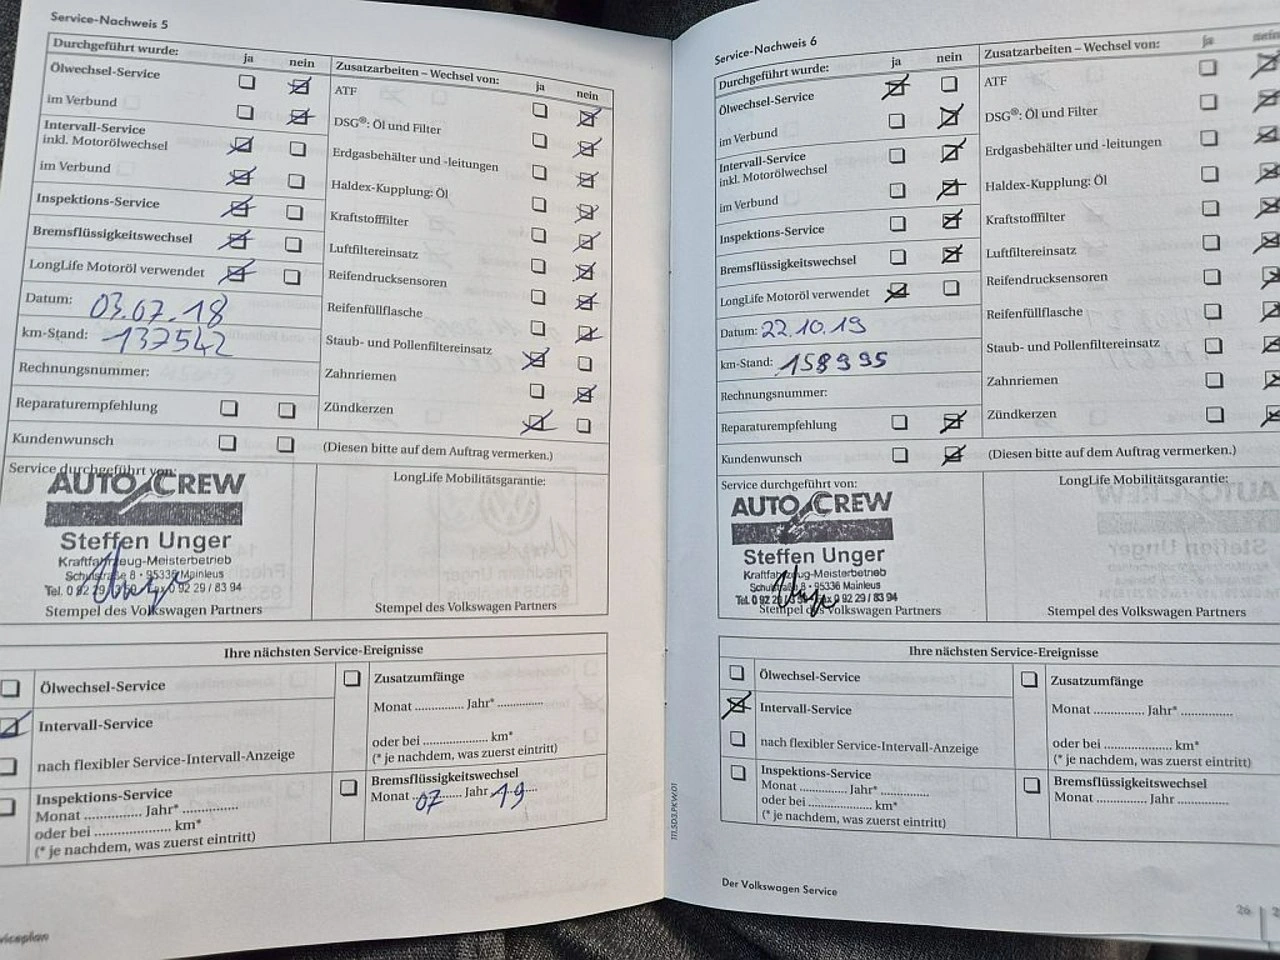 Service-Nachweis 5
Durchgeführt wurde: ja nein
Ölwechsel-Service
im Verbund
Intervall-Service
inkl. Motorölwechsel
im Verbund
Inspektions-Service
Bremsflüssigkeitswechsel
LongLife Motoröl verwendet
Datum: 03.07.18
km-Stand: 137542
Rechnungsnummer:
Reparaturempfehlung
Kundenwunsch
Zusatzarbeiten – Wechsel von: ja nein
ATF
DSG®: Öl und Filter
Erdgasbehälter und -leitungen
Haldex-Kupplung: Öl
Kraftstofffilter
Luftfiltereinsatz
Reifendrucksensoren
Reifenfüllflasche
Staub- und Pollenfiltereinsatz
Zahnriemen
Zündkerzen
(Diesen bitte auf dem Auftrag vermerken.)
Service durchgeführt von:
AUTO CREW
Steffen Unger
Kraftfahrzeug-Meisterbetrieb
Schulstraße 8 • 95336 Mainleus
Tel. 0 92 29 / 83 94
Stempel des Volkswagen Partners
LongLife Mobilitätsgarantie:
Stempel des Volkswagen Partners
Ihre nächsten Service-Ereignisse
Ölwechsel-Service
Intervall-Service
nach flexibler Service-Intervall-Anzeige
Inspektions-Service
Monat .............. Jahr* ..................
oder bei ........................ km*
(* je nachdem, was zuerst eintritt)
Zusatzumfänge
Monat .............. Jahr* ...............
oder bei .................... km*
(* je nachdem, was zuerst eintritt)
Bremsflüssigkeitswechsel
Monat 07 Jahr 19
Service-Nachweis 6
Durchgeführt wurde: ja nein
Ölwechsel-Service
im Verbund
Intervall-Service
inkl. Motorölwechsel
im Verbund
Inspektions-Service
Bremsflüssigkeitswechsel
LongLife Motoröl verwendet
Datum: 22.10.19
km-Stand: 158995
Rechnungsnummer:
Reparaturempfehlung
Kundenwunsch
Zusatzarbeiten – Wechsel von: ja nein
ATF
DSG®: Öl und Filter
Erdgasbehälter und -leitungen
Haldex-Kupplung: Öl
Kraftstofffilter
Luftfiltereinsatz
Reifendrucksensoren
Reifenfüllflasche
Staub- und Pollenfiltereinsatz
Zahnriemen
Zündkerzen
(Diesen bitte auf dem Auftrag vermerken.)
Service durchgeführt von:
AUTO CREW
Steffen Unger
Kraftfahrzeug-Meisterbetrieb
Schulstraße 8 • 95336 Mainleus
Tel. 0 92 29 / Fax 0 92 29 / 83 94
Stempel des Volkswagen Partners
LongLife Mobilitätsgarantie:
Stempel des Volkswagen Partners
Ihre nächsten Service-Ereignisse
Ölwechsel-Service
Intervall-Service
nach flexibler Service-Intervall-Anzeige
Inspektions-Service
Monat .............. Jahr* ..............
oder bei .................... km*
(* je nachdem, was zuerst eintritt)
Zusatzumfänge
Monat .............. Jahr* ...............
oder bei .................... km*
(* je nachdem, was zuerst eintritt)
Bremsflüssigkeitswechsel
Monat .............. Jahr ...............
Der Volkswagen Service
26